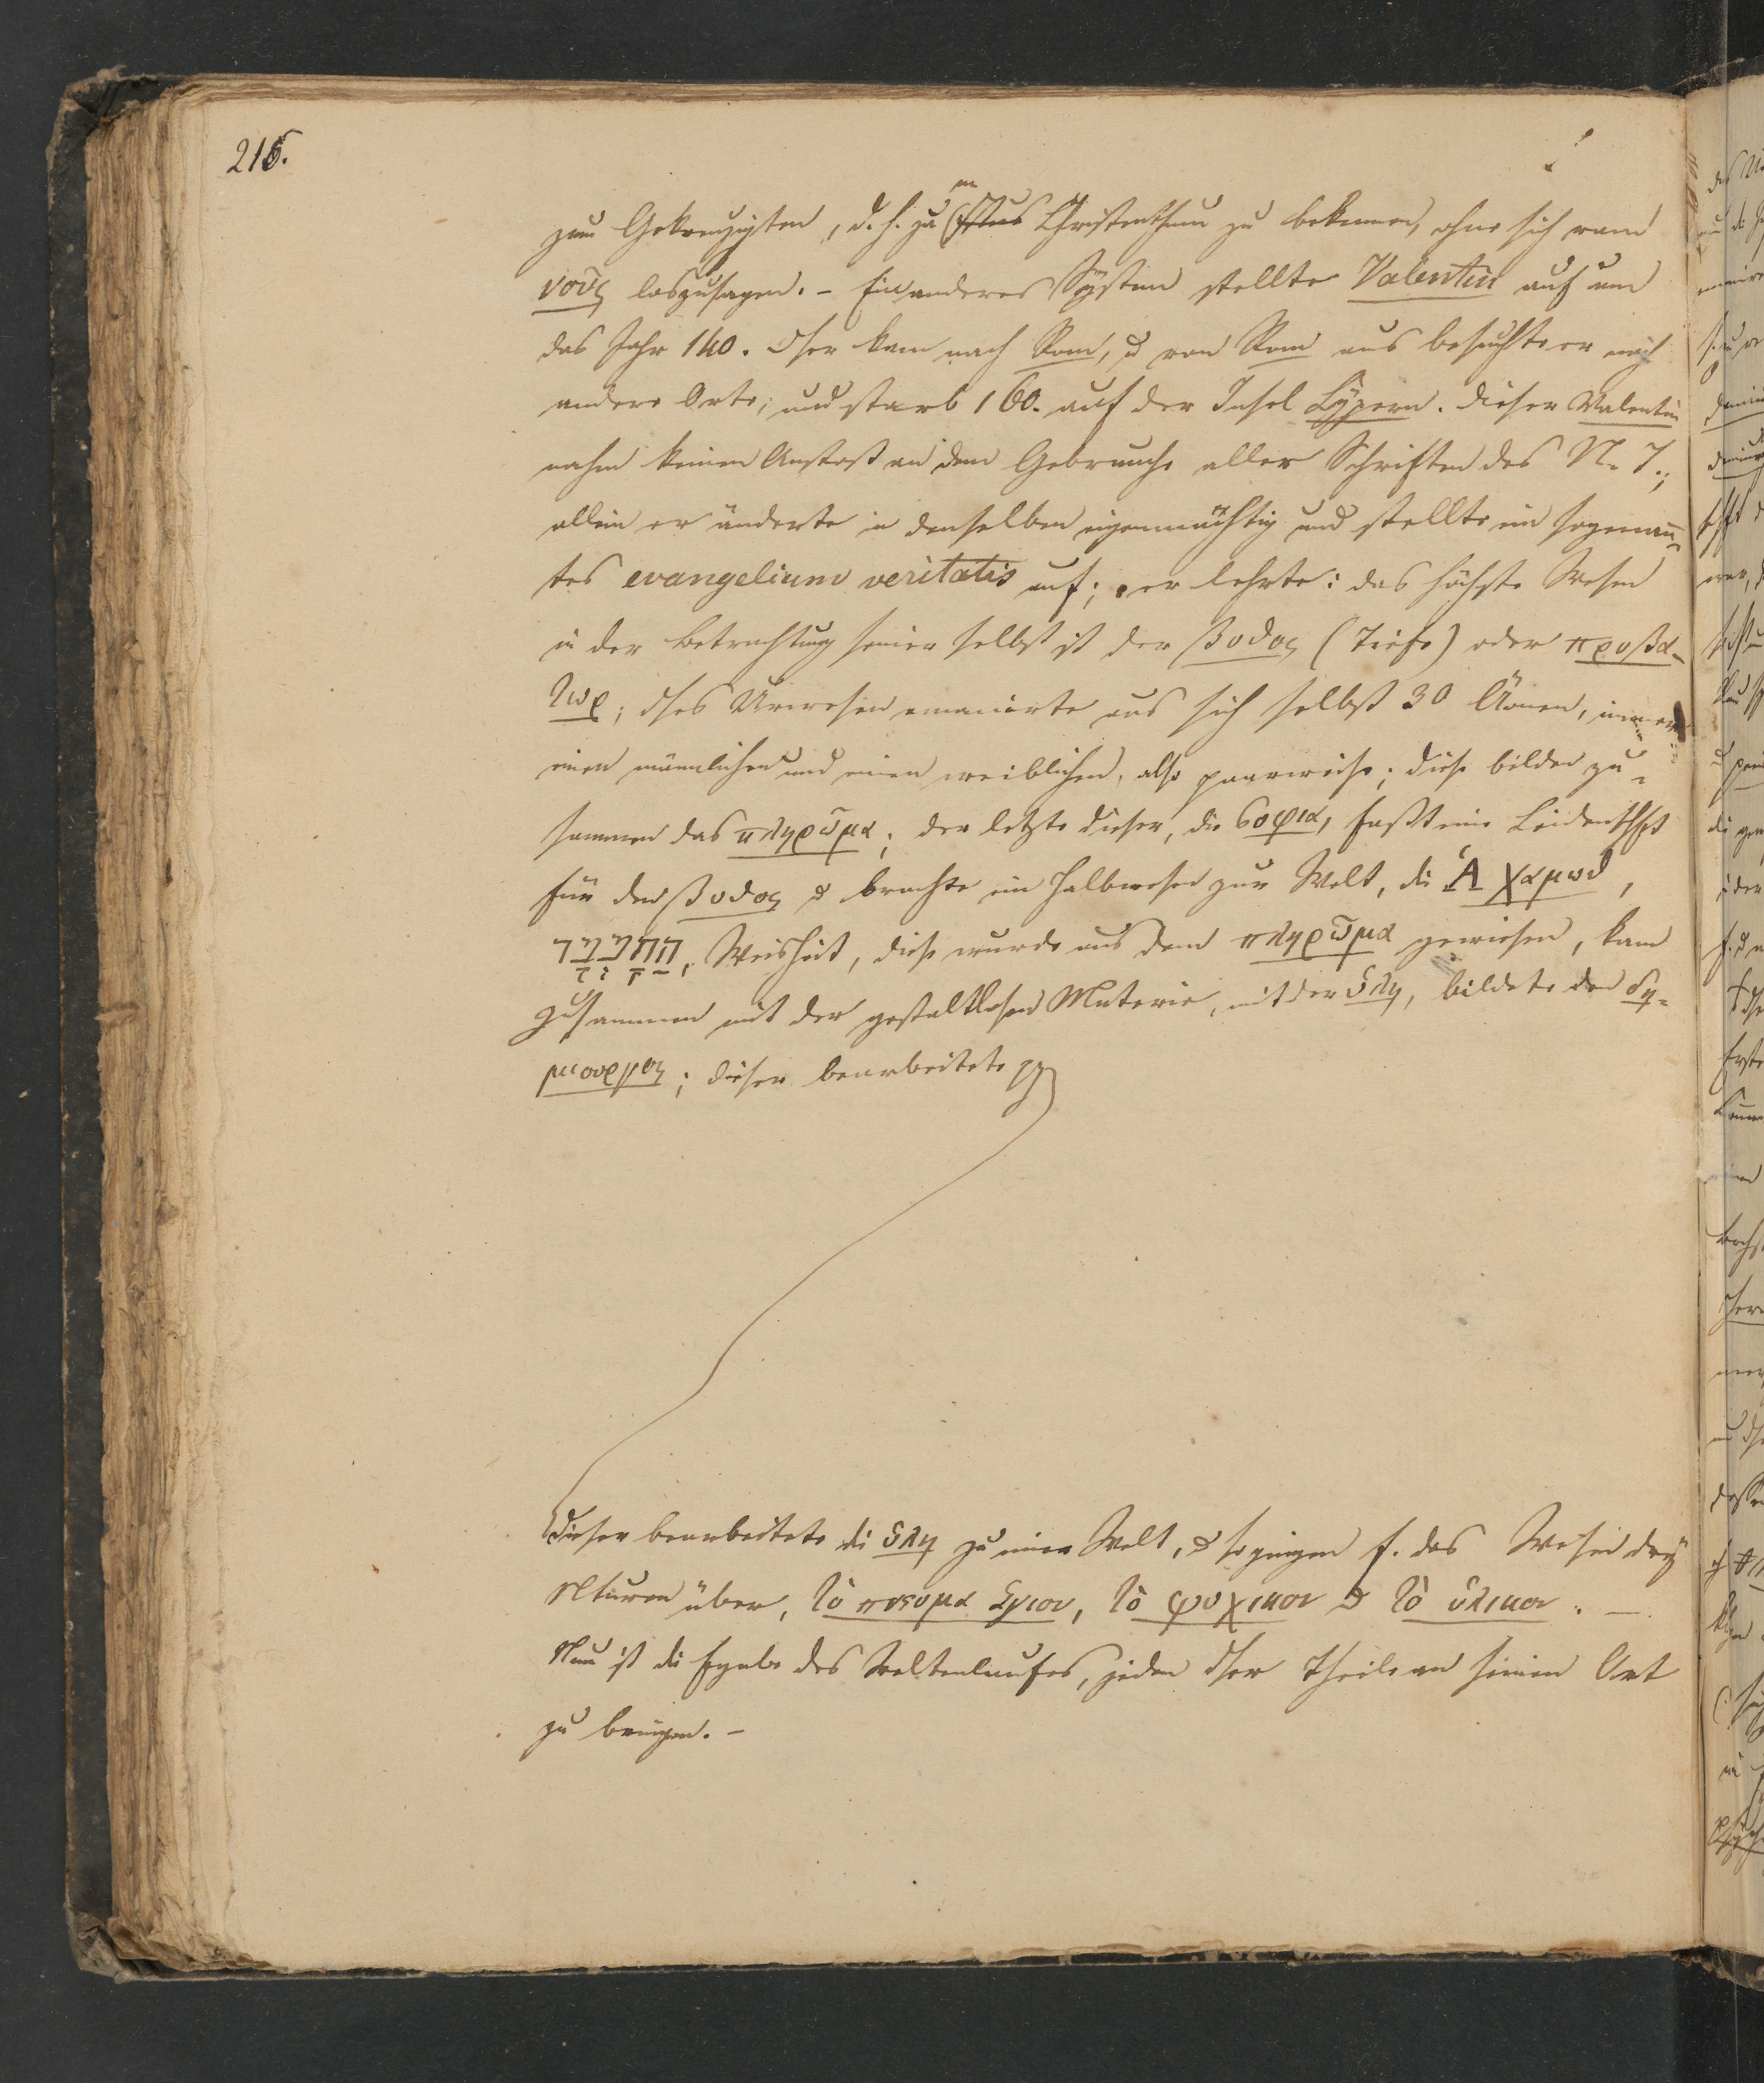 216.
zum Gekreuzigten, d. h. zum Christenthum zu bekennen, ohne sich vom
νοῦς loszusagen. – Ein anderes System stellte Valentin auf um
das Jahr 140. Dser kam nach Rom, & von Rom aus besuchte er noch
andere Orte; und starb 160. auf der Insel Cypern. Dieser Valentin
nahm keinen Anstoß an dem Gebrauche aller Schriften des N. T.;
allein er änderte in denselben eigenmächtig und stellte ein sogenann-
tes evangelium veritatis auf; er lehrte: das höchste Wesen
in der Betrachtung seiner selbst ist der βυϑος (Tiefe) oder προβα-
τωρ; dses Urwesen emanirte aus sich selbst 30 Äonen, immer
einen männlichen und einen weiblichen, also paarweise; diese bilden zu-
sammen das πληρῶμα; der letzte dieser, die σοφια, faßt eine Leidenschft
für den βυϑος & brachte ein Halbwesen zur Welt, die Ἀχαμωϑ,
Weisheit, diese wurde aus dem πληρῶμα gewiesen, kam
zusammen mit der gestaltlosen Materie, mit der ὑλη, bildete den δη-
μιουργος; dieser bearbeitete
dieser bearbeitete die ὑλη zu einer Welt, & so gingen f. das Wesen drey
Nturen über, τὸ πνευμα ἁγιον, τὸ ψυχικον & τὸ ὑλικον. –
Nun ist die Fgabe des Weltenlaufes, jeden dser Theile an seinen Ort
zu bringen. –